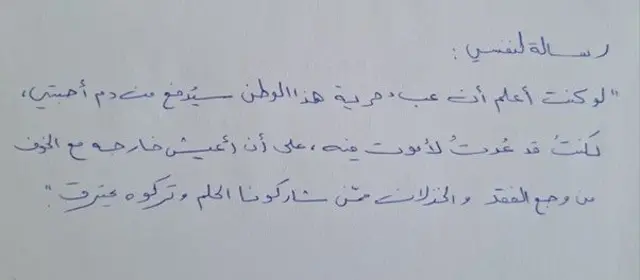 رسالة لنفسي:
"لو كنت أعلم أن عبء حرية هذا الوطن سيُدفع من دم أحبتي،
لكنتُ قد عُدتُ لأموت فيه، على أن أعيش خارجه مع الخوف
من وجع الفقد والخذلان ممّن شاركونا الحلم وتركوه يحترق".